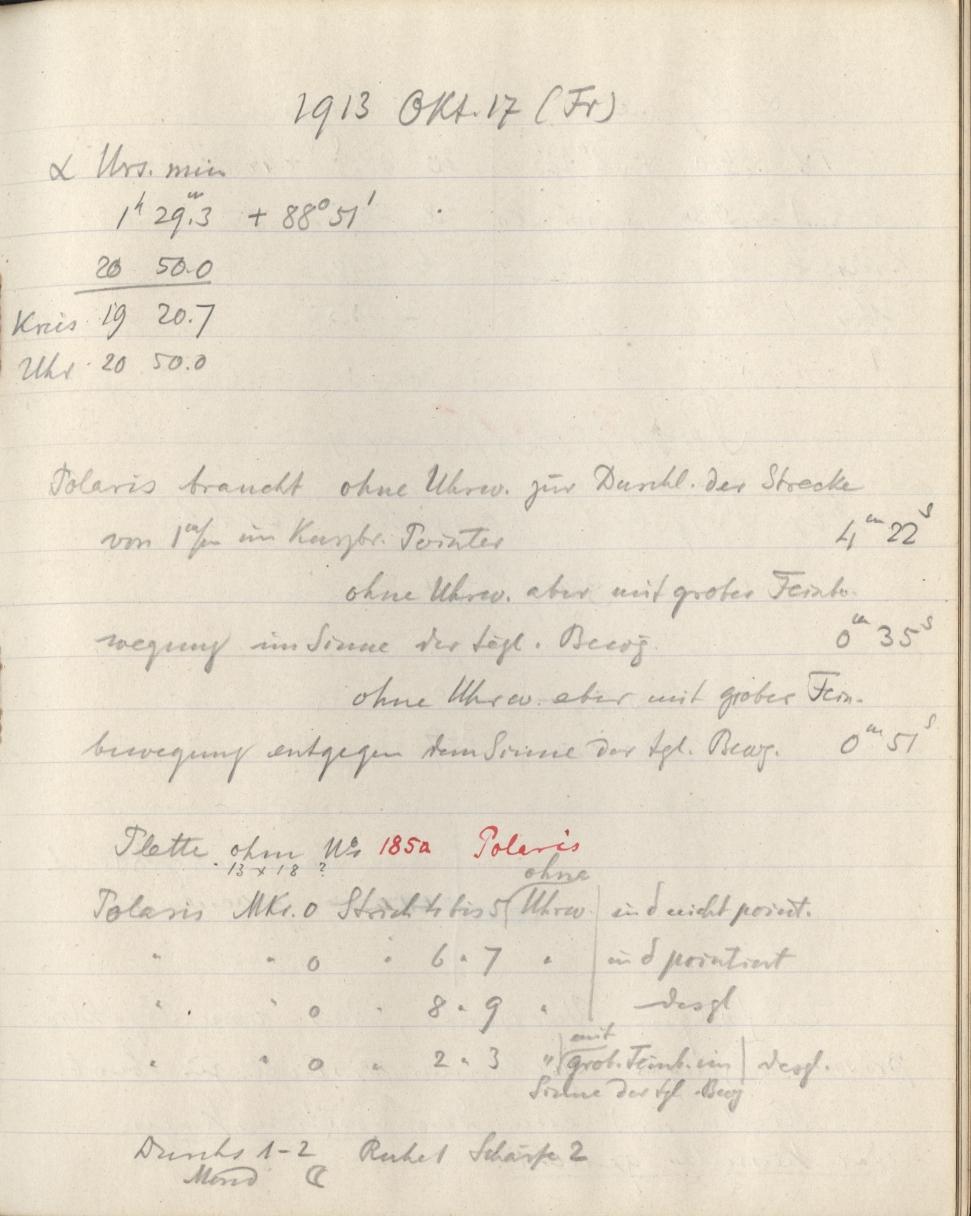 1913 Okt. 17 (Fr)
α Urs. min
1ʰ 29.ᵐ3 + 88° 51'
20 50.0
Kreis 19 20.7
Uhr 20 50.0
Polaris braucht ohne Uhrw. zur Durchl. der Strecke
von 1 im Pointer 4ᵐ 22ˢ
ohne Uhrw. aber mit grober Feinbe-
wegung im Sinne der tägl. Bewg. 0ᵐ 35ˢ
ohne Uhrw. aber mit grober Fein-
bewegung entgegen dem Sinne der tgl. Bewg. 0ᵐ 51ˢ
Platte ohne No 185a Polaris
13 x 18 ?
ohne
Polaris MKr. 0 Strich 4 bis 5 Uhrw. in δ nicht point.
" " 0 " 6 " 7 " in δ pointiert
" " 0 " 8 " 9 " desgl
mit
" " 0 " 2 " 3 " grob. Feinb. im desgl.
Sinne der tgl. Bewg
Durchs 1-2 Ruhe 1 Schärfe 2
Mond ☾